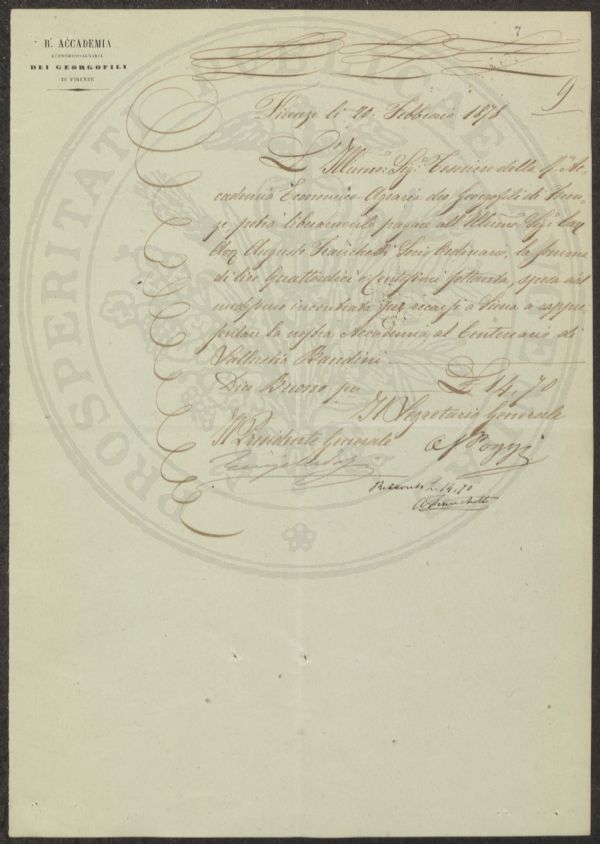 7
R. ACCADEMIA
ECONOMICO-AGRARIA
DEI GEORGOFILI
DI FIRENZE
9
Firenze li 20. Febbraio 1878
L'Illmo. Sig. Tesoriere della R. Ac-
cademia Economico-Agraria dei Georgofili di Firen-
ze potrà liberamente pagare all'Illmo. Sig. Cav.
Augusto Franchetti Socio Ordinario, la somma
di lire Quattordici e Centesimi settanta, spesa dal
medesimo incontrata per recarsi a Siena a rappre-
sentare la nostra Accademia al Centenario di
Sallustio Bandini
Dico Buono per £ 14,70
Il Segretario Generale
Il Presidente Generale
Poggi
Ricevuto L. 14,70
A Franchetti
PROSPERITATI PUBLICAE